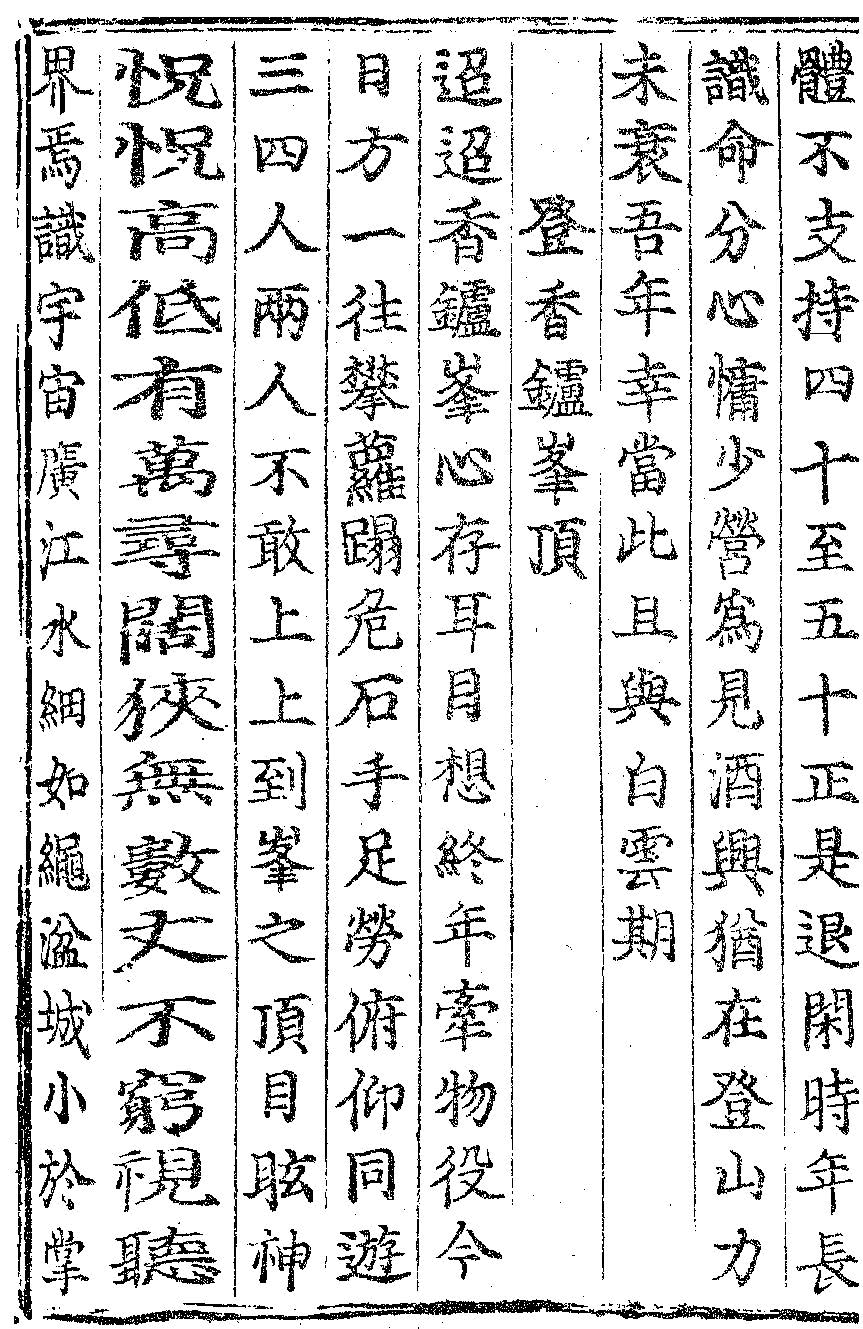 體不支持四十至五十正是退閑時年長
識命分心慵少營爲見酒興猶在登山力
未衰吾年幸當此且與白雲期
登香鑪峯頂
迢迢香鑪峯心存耳目想終年牽物役今
日方一往攀蘿蹋危石手足勞俯仰同遊
三四人兩人不敢上上到峯之頂目眩神
怳怳高低有萬尋闊狹無數丈不窮視聽
界焉識宇宙廣江水細如繩湓城小於掌